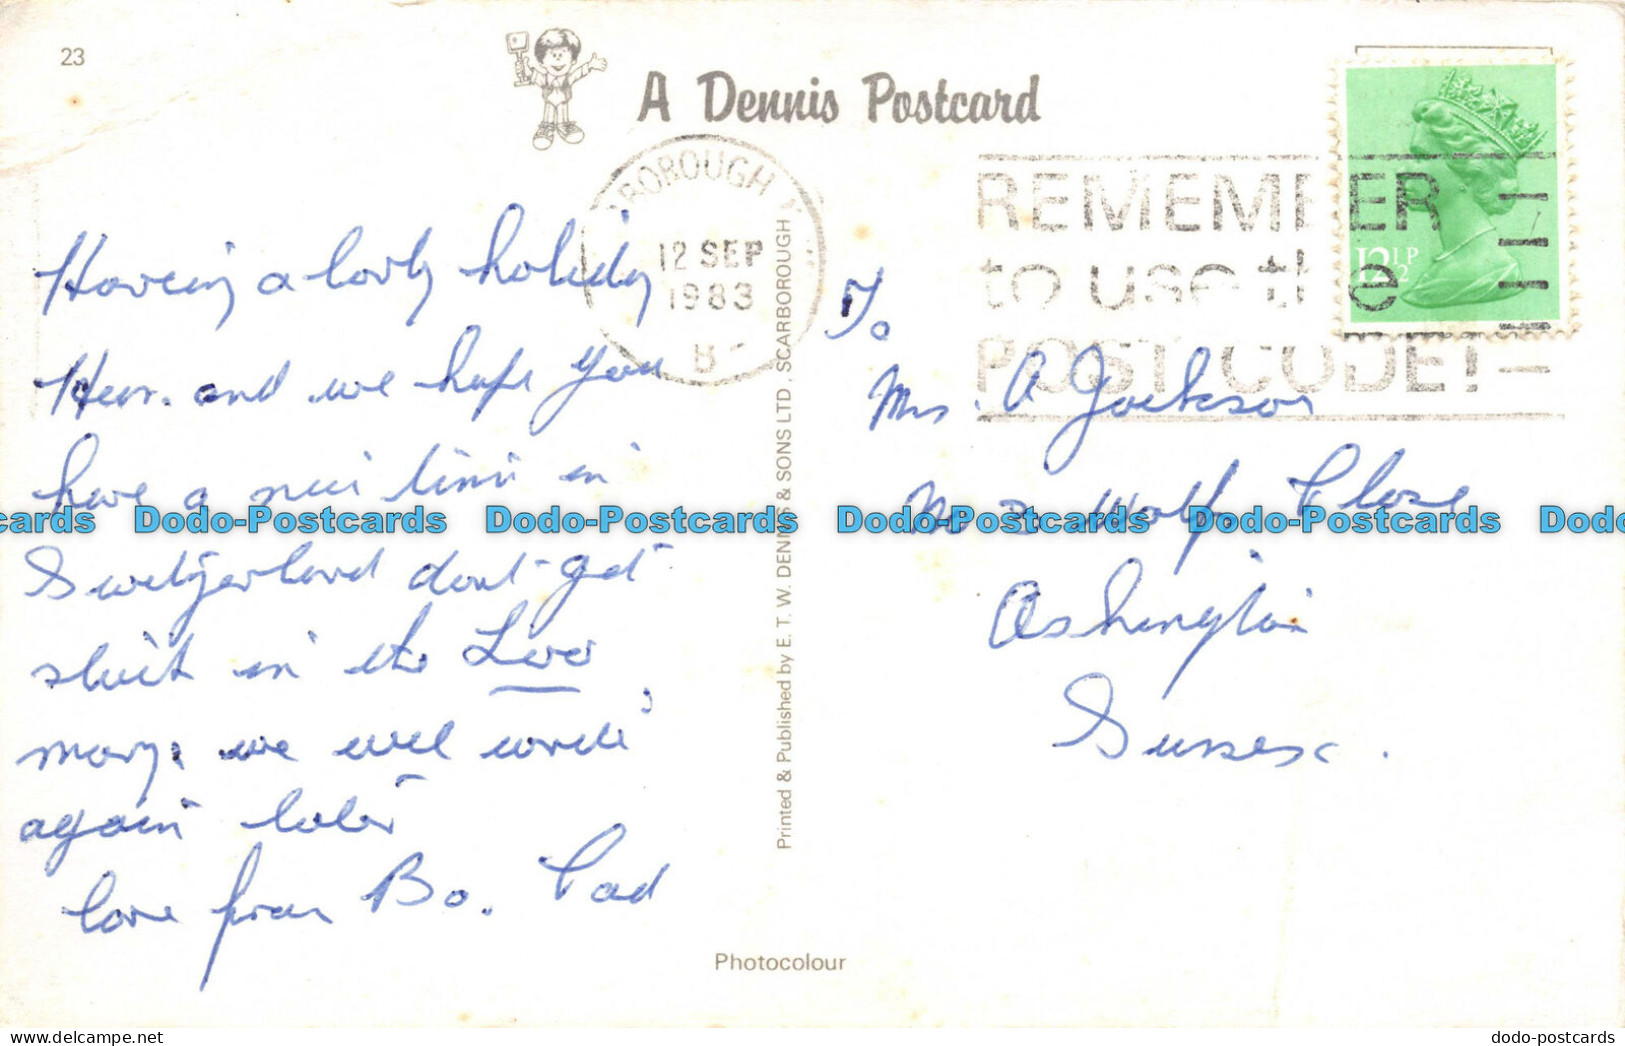 23
A Dennis Postcard
BOROUGH Y
12 SEP
1983
B
REMEMBER
to use the
POSTCODE!
12½P
Having a lovly holiday
Hear. and we hope you
have a nice time in
Switzerland dont get
stuck in the Loo
mary. we will write
again later
love from Bo. Tad
To
Mrs. A Jackson
No 3 Wolf Close
Ashington
Sussex.
Printed & Published by E. T. W. DENNIS & SONS LTD., SCARBOROUGH
Photocolour
cards Dodo-Postcards Dodo-Postcards Dodo-Postcards Dodo-Postcards Dodo
dodo-postcards